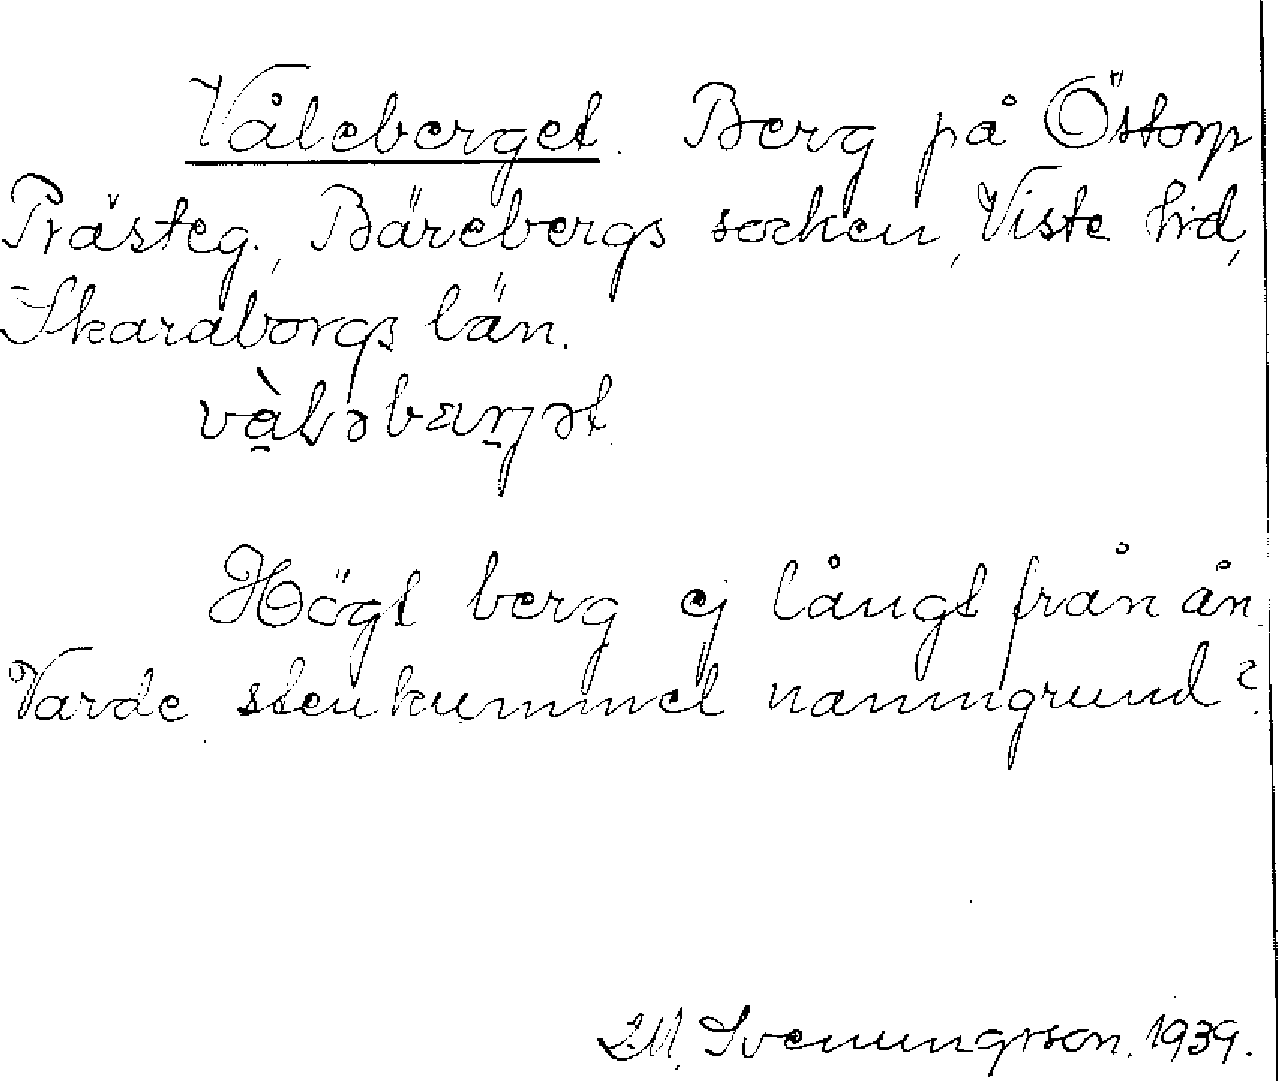 Våleberget. Berg på Östorp
Prästeg., Bärebergs socken, Viste hd,
Skaraborgs län.
Högt berg ej långt från ån.
Varde stenkummel namngrund?
M. Svenungsson. 1939.